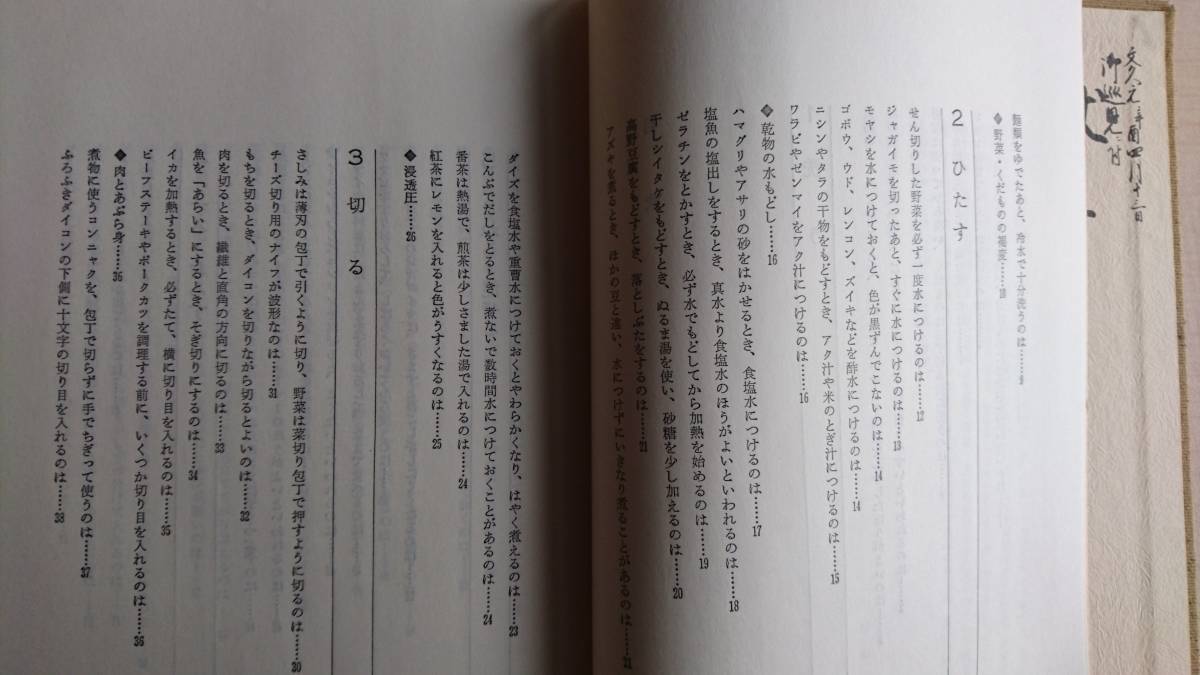 麺類をゆでたあと、冷水で十分洗うのは……9
◆野菜・くだものの褐変……10
2 ひたす
せん切りした野菜を必ず一度水につけるのは……12
ジャガイモを切ったあと、すぐに水につけるのは……13
モヤシを水につけておくと、色が黒ずんでこないのは……14
ゴボウ、ウド、レンコン、ズイキなどを酢水につけるのは……14
ニシンやタラの干物をもどすとき、アク汁や米のとぎ汁につけるのは……15
ワラビやゼンマイをアク汁につけるのは……16
◆乾物の水もどし……16
ハマグリやアサリの砂をはかせるとき、食塩水につけるのは……17
塩魚の塩出しをするとき、真水より食塩水のほうがよいといわれるのは……18
ゼラチンをとかすとき、必ず水でもどしてから加熱を始めるのは……19
干しシイタケをもどすとき、ぬるま湯を使い、砂糖を少し加えるのは……20
高野豆腐をもどすとき、落としぶたをするのは……21
アズキを煮るとき、ほかの豆と違い、水につけずにいきなり煮ることがあるのは……21
ダイズを食塩水や重曹水につけておくとやわらかくなり、はやく煮えるのは……23
こんぶでだしをとるとき、煮ないで数時間水につけておくことがあるのは……24
番茶は熱湯で、煎茶は少しさました湯で入れるのは……24
紅茶にレモンを入れると色がうすくなるのは……25
◆浸透圧……26
3 切る
さしみは薄刃の包丁で引くように切り、野菜は菜切り包丁で押すように切るのは……30
チーズ切り用のナイフが波形なのは……31
もちを切るとき、ダイコンを切りながら切るとよいのは……32
肉を切るとき、繊維と直角の方向に切るのは……33
魚を「あらい」にするとき、そぎ切りにするのは……34
イカを加熱するとき、必ずたて、横に切り目を入れるのは……35
ビーフステーキやポークカツを調理する前に、いくつか切り目を入れるのは……36
◆肉とあぶら身……36
煮物に使うコンニャクを、包丁で切らずに手でちぎって使うのは……37
ふろふきダイコンの下側に十文字の切り目を入れるのは……38